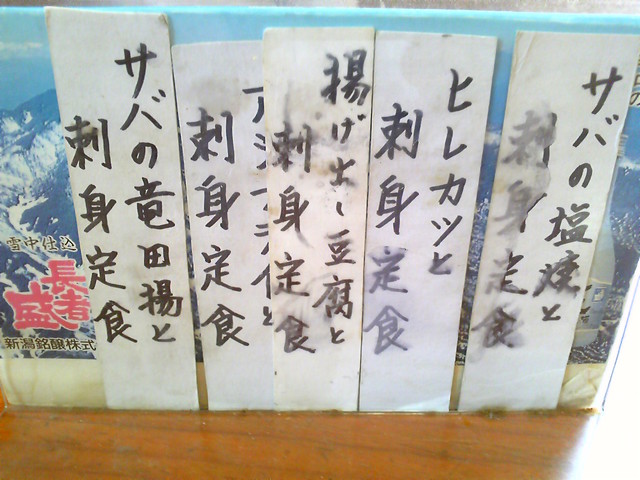 サバの塩焼と
刺身定食
ヒレカツと
刺身定食
揚げ出し豆腐と
刺身定食
アジフライと
刺身定食
サバの竜田揚と
刺身定食
雪中仕込
長者盛
新潟銘醸株式